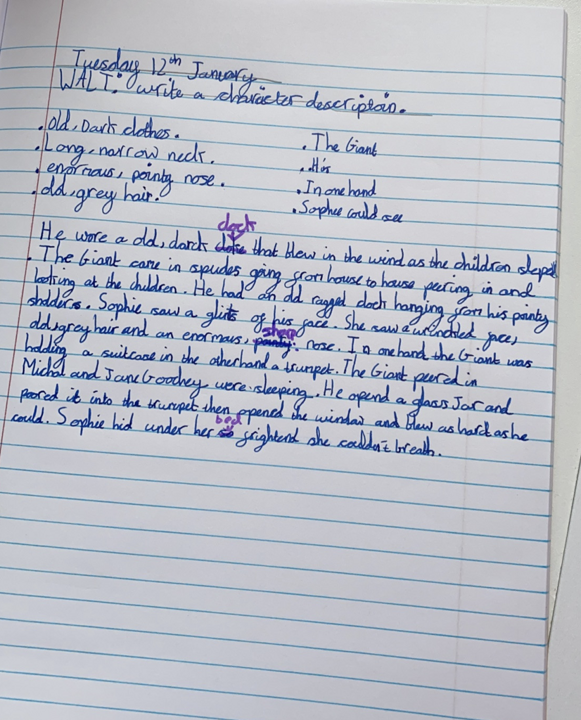 Tuesday 12th January
WALT: write a character descriptoin.
. old, Dark clothes.
. Long, narrow neck.
. enormous, pointy nose.
. old, grey hair.
. The Giant
. His
. In one hand
. Sophie could see
clock
He wore a old, darck that blew in the wind as the children sleped
. The Giant came in spudes going from house to house peering in and
looking at the children. He had an old ragged cloch hanging from his pointy
sholders. Sophie saw a glits of his face. She saw a wrinckled face,
old, grey hair and an enormas, sharp nose. In one hand the Giant was
holding a suitcase in the other hand a trumpet. The Giant peered in
Michal and Jane Goochey were sleeping. He opend a glass Jar and
poored it into the trumpet then opened the window and blew as hard as he
could. Sophie hid under her bed frightend she couldn't breath.